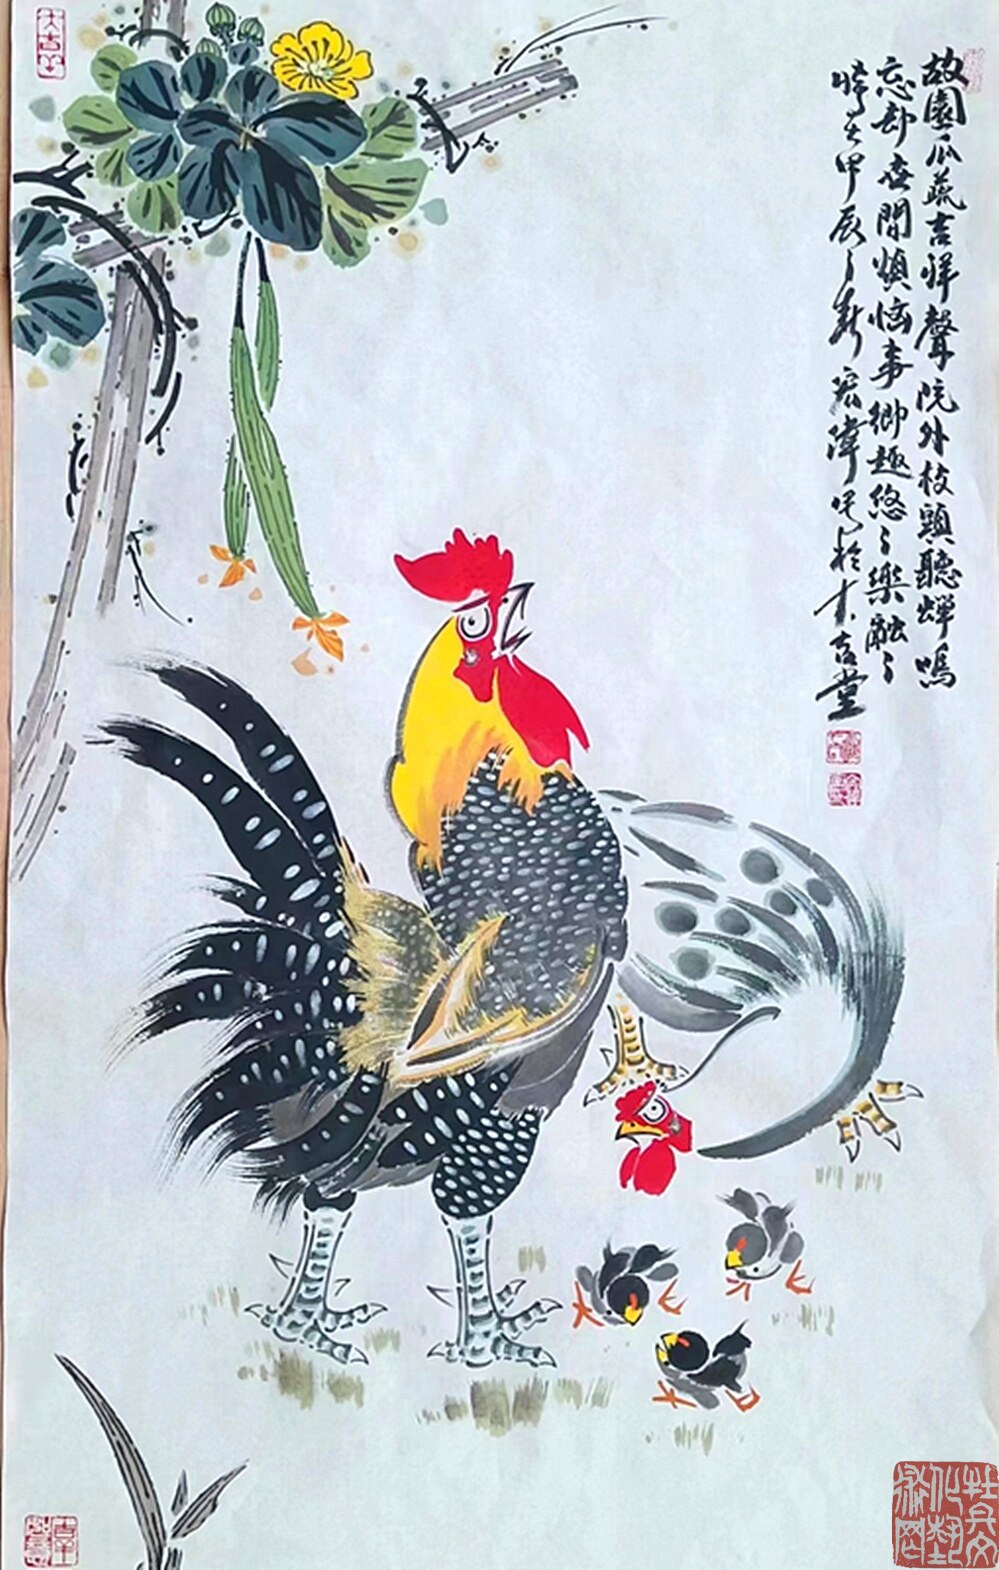 大吉羊
故園瓜蔬吉祥聲院外枝頭聽蟬鳴
忘却世間煩惱事鄉趣悠〻樂融〻
時在甲辰之宏偉於大吉堂